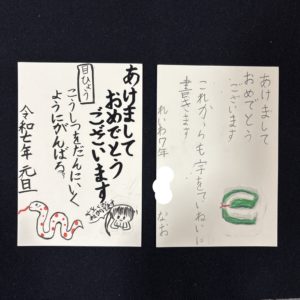 あけまして
おめでとう
ございます
目ひょう
こうしつをだんにいく
ようにがんばる。
令和七年 元旦
あけまして
おめでとう
ございます
これからも字をていねいに
書きます
れいわ7年
なお